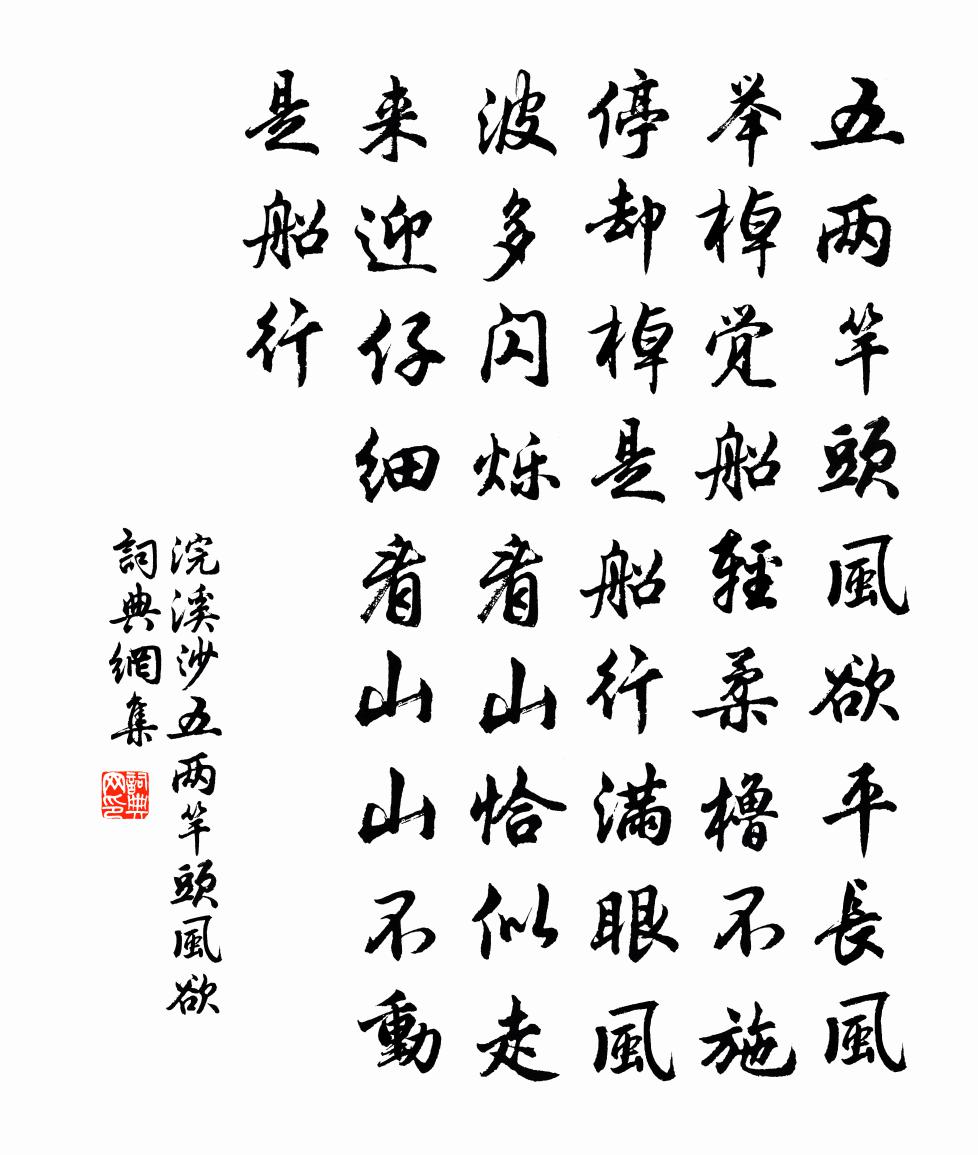 五两竿頭風欲平長風
举棹觉船輕柔櫓不施
停却棹是船行满眼風
波多闪烁看山恰似走
来迎仔细看山山不動
是船行
浣溪沙五两竿頭風欲
詞典網集
詞典网印